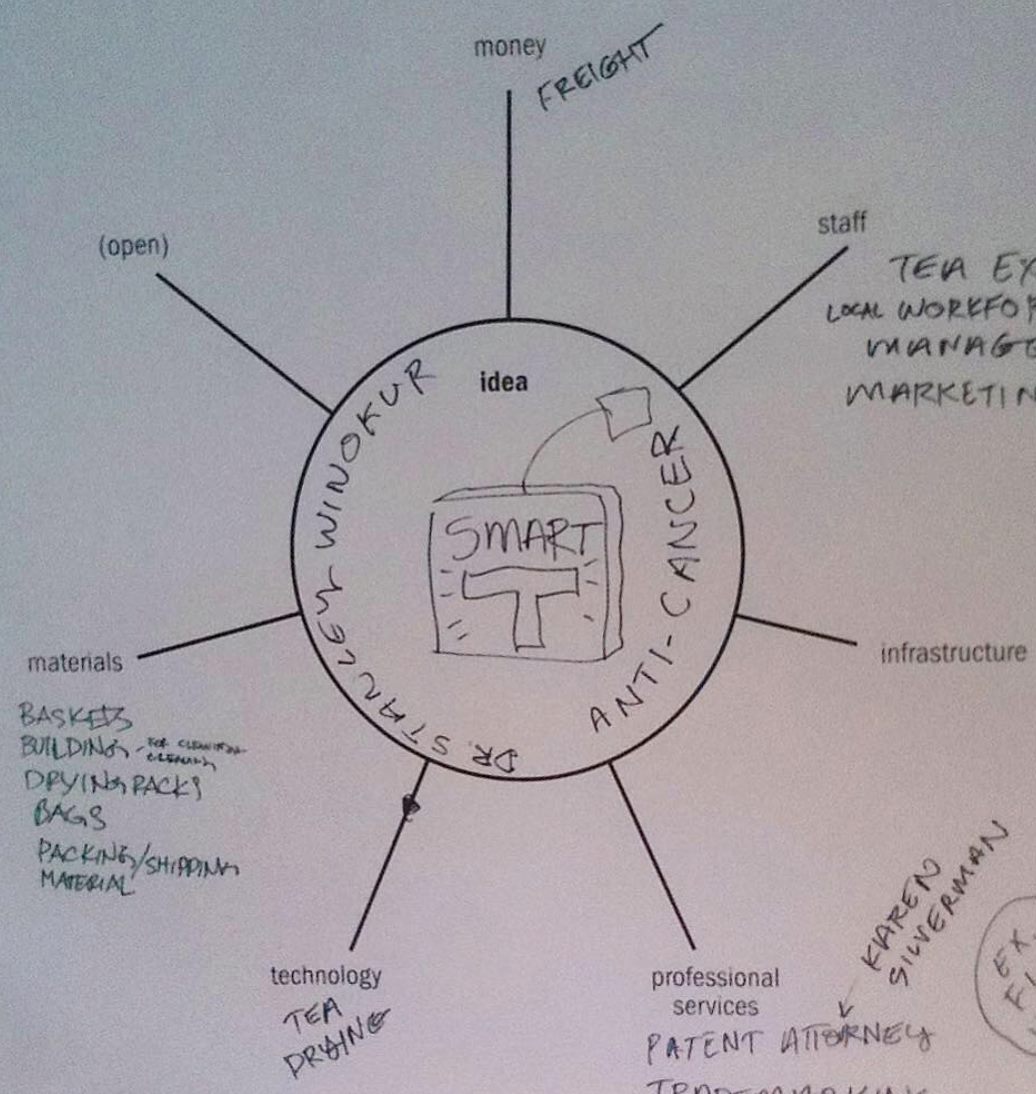 money
FREIGHT
(open)
staff
TEA EX
LOCAL WORKFOR
MANAGE
MARKETIN
idea
DR. STANLEY WINOKUR
ANTI-CANCER
SMART
T
infrastructure
materials
BASKETS
BUILDING - FOR CLEANING
DRYING RACKS
BAGS
PACKING/SHIPPING
MATERIAL
technology
TEA
DRYING
professional
services
KAREN
SILVERMAN
PATENT ATTORNEY
TRADEMARKING
EX.